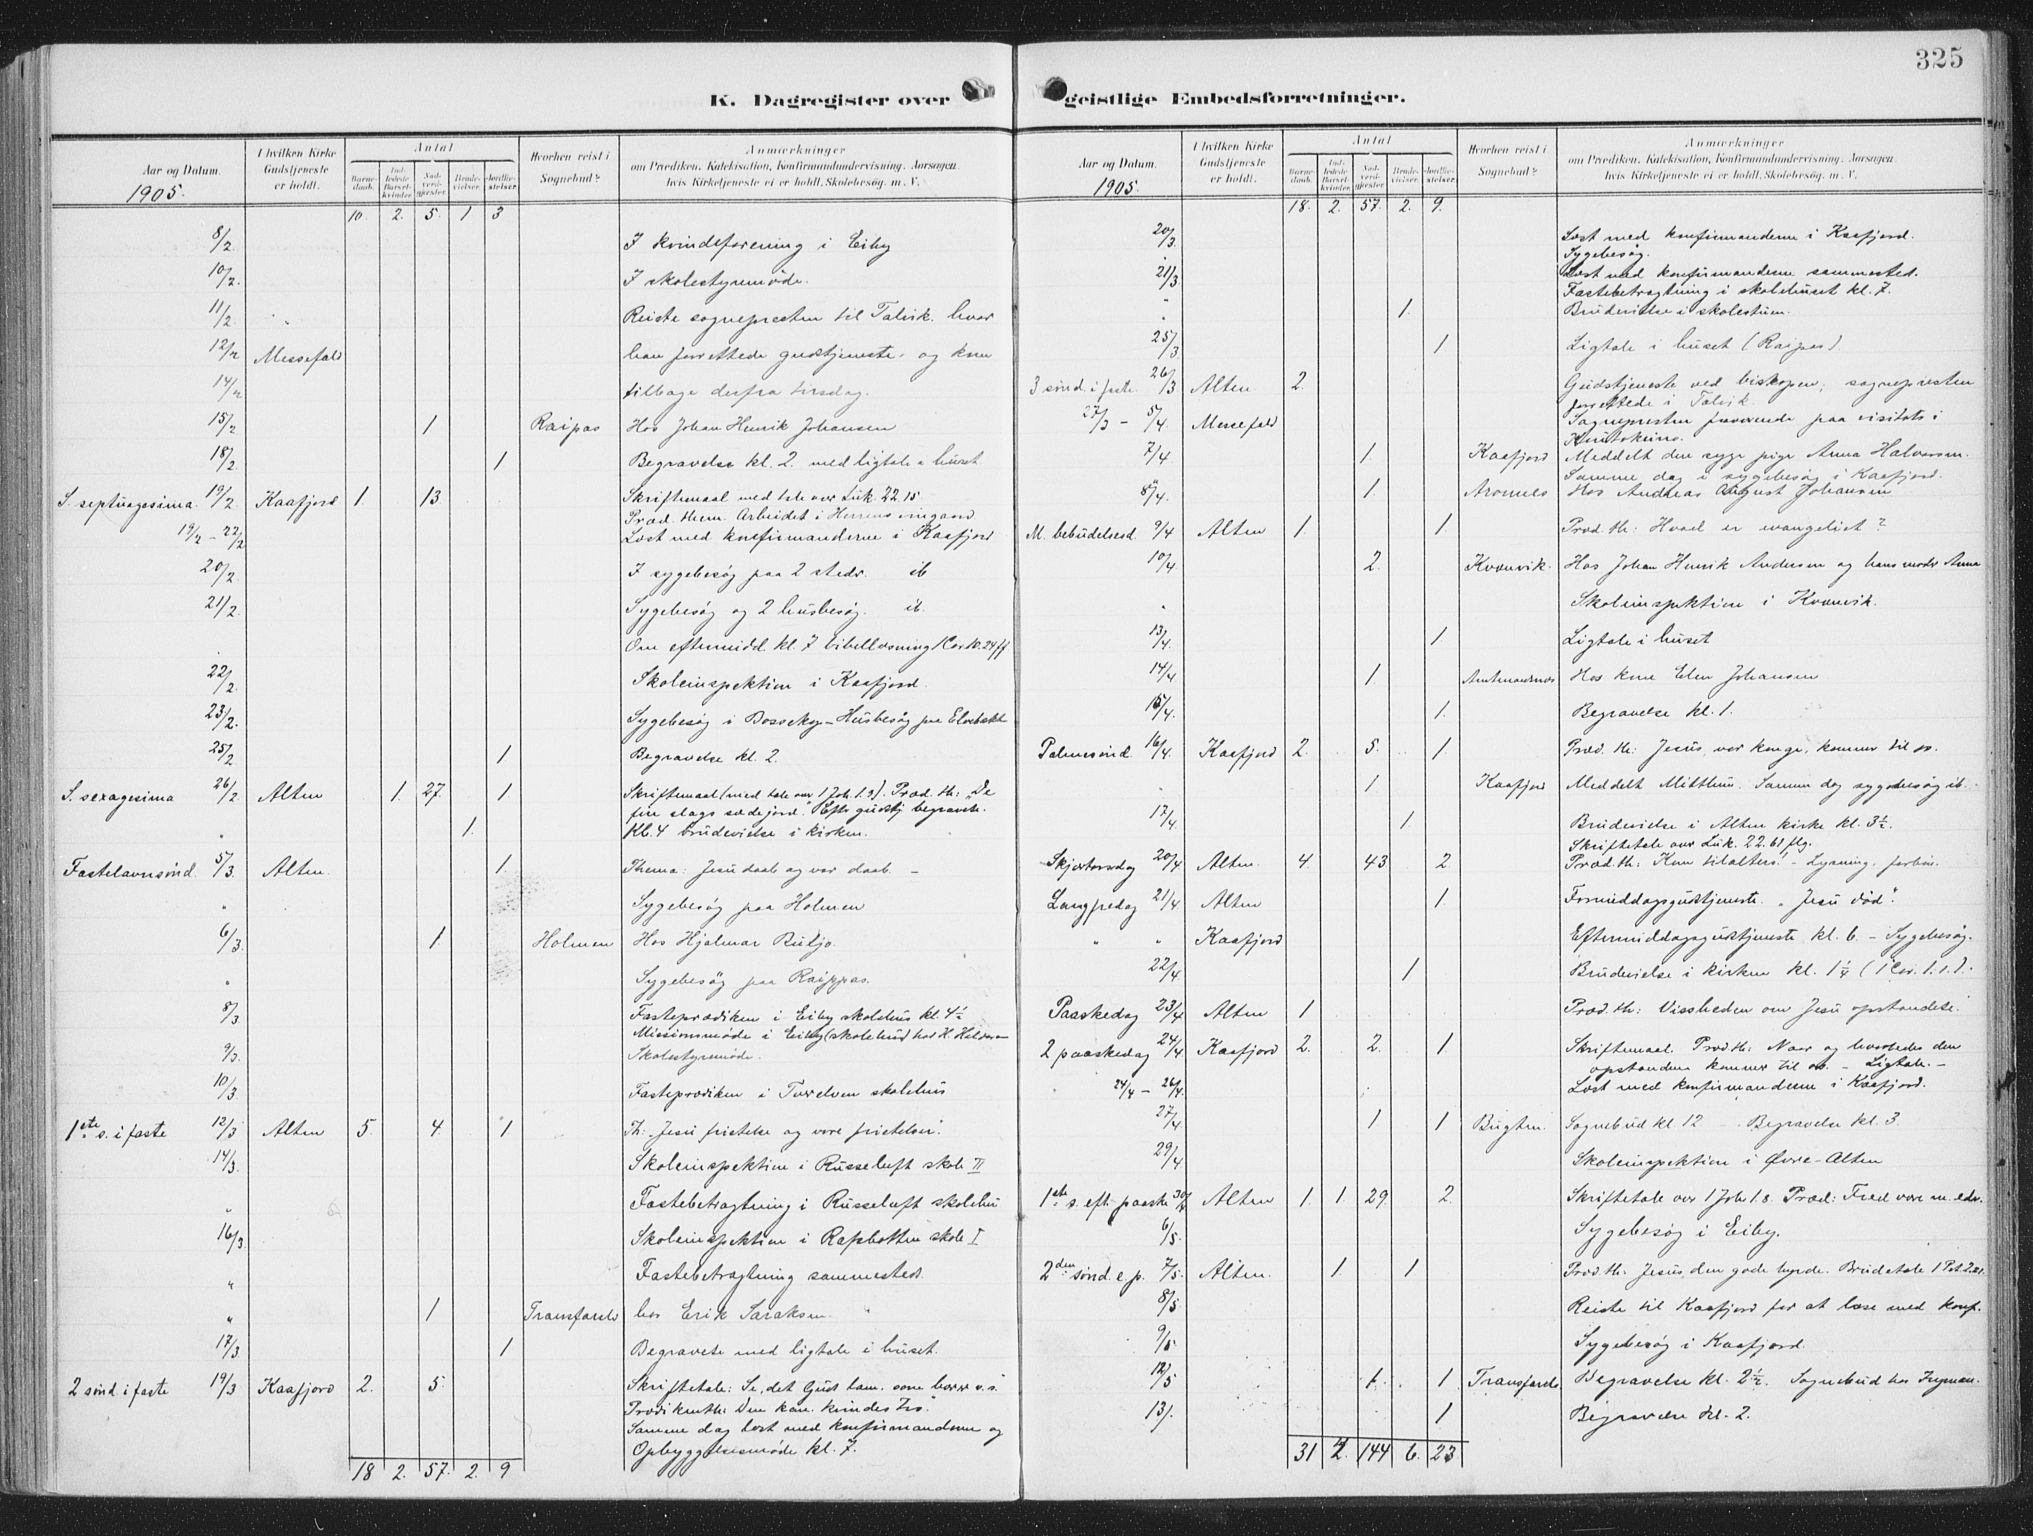 325
K. Dagregister over geistlige Embedsforretninger.
Aar og Datum. 1905.
I hvilken Kirke Gudstjeneste er holdt.
Antal
Barnedaab.
Indledede Barselkvinder.
Nadverdgjester.
Brudevielser.
Jordfæstelser.
Hvorhen reist i Sognebud?
Anmærkninger
om Prædiken. Katekisation, Konfirmandundervisning. Aarsagen, hvis Kirketjeneste ei er holdt. Skolebesøg. m. V.
10. 2. 5. 1 3
8/2. I kvindeforening i Eiby
10/2. I skolestyremøde.
11/2. Reiste sognepresten til Talvik. hvor
12/2 Messefald han forrettede gudstjeneste og kom
14/2 tilbage derfra tirsdag.
15/2 1 Raipas Hos Johan Henrik Johansen
18/2. 1 Begravelse kl. 2. med ligtale i huset
S. septuagesima. 19/2 Kaafjord 1. 13 Skriftemaal med tale over Luk 22.15
Præd. them. Arbeidet i Herrens vingaard.
19/2 - 22/2 Læst med konfirmanderne i Kaafjord
20/2. I sygebesøg paa 2 steder. ib
21/2. Sygebesøg og 2 husbesøg. ib.
Om eftermidd. kl. 7 bibellæsning 1 Cor 10.24 ff
22/2. Skoleinspektion i Kaafjord.
23/2. Sygebesøg i Bossekop - Husbesøg paa Elvebakke
25/2 1 Begravelse kl. 2.
S. sexagesima 26/2 Alten 1. 27. 1 Skriftemaal (med tale over 1 Joh. 1.9). Præd. th: "De
fire slags sædejord." Efter gudstj. begravelse.
" 1. Kl. 4 brudevielse i kirken.
Fastelavnsønd. 5/3. Alten. 1. Thema: Jesu daab og vor daab. -
" Sygebesøg paa Holmen
6/3. 1. Holmen Hos Hjalmar Buljo.
" Sygebesøg paa Raippas.
8/3 Fasteprædiken i Eiby skolehus kl. 4 1/2
Missionsmøde i Eiby (skolehus) hos H. Halvorsen
9/3. Skolestyremøde.
10/3. Fasteprædiken i Tverelven skolehus
1ste s. i faste 12/3 Alten 5. 4. 1 Th: "Jesu fristelse og vore fristelser".
14/3. Skoleinspektion i Russeluft skole II
" Fastebetragtning i Russeluft skolehus
16/3. Skoleinspektion i Rafsbotten skole I
" Fastebetragtning sammesteds.
" 1 Transfarelv hos Erik Saraksen.
17/3. 1 Begravelse med ligtale i huset.
2 sønd. i faste 19/3 Kaafjord 2. 5. Skriftetale: Se, det Guds lam, som bærer v. s.
Prædikenth: Den kan. kvindes tro.
Samme dag læst med konfirmanderne og
Opbyggelsesmøde kl. 7.
18 2. 57. 2. 9
Aar og Datum. 1905.
I hvilken Kirke Gudstjeneste er holdt.
Antal
Barnedaab.
Indledede Barselkvinder.
Nadverdgjester.
Brudevielser.
Jordfæstelser.
Hvorhen reist i Sognebud?
Anmærkninger
om Prædiken. Katekisation, Konfirmandundervisning. Aarsagen, hvis Kirketjeneste ei er holdt. Skolebesøg. m. V.
18. 2. 57. 2. 9.
20/3. Læst med konfirmanderne i Kaafjord.
Sygebesøg.
21/3. Læst med konfirmanderne sammested.
Fastebetragtning i skolehuset kl. 7.
" 1. Brudevielse i skolestuen.
25/3. 1 Ligtale i huset (Raipas)
3 sønd. i faste 26/3 Alten 2. Gudstjeneste ved biskopen; sognepresten
forrettede i Talvik.
27/3 - 5/4. Messefald Sognepresten fraværende paa visitats i
Kautokeino.
7/4. 1. Kaafjord Meddelt den syge pige Anna Halvorsen.
Samme dag i sygebesøg i Kaafjord.
8/4. 1. Aronnes Hos Andreas August Johansen
M. bebudelsesd. 9/4 Alten 1. 1 Præd. th: Hvad er evangeliet?
10/4. 2. Kvænvik. Hos Johan Henrik Andersen og hans moder Anna
" Skoleinspektion i Kvænvik.
13/4. 1 Ligtale i huset
14/4 1 Amtmandsnes Hos kone Elen Johansen
15/4. 1. Begravelse kl. 1.
Palmesønd. 16/4. Kaafjord 2. 5. 1. Præd. th: Jesus, vor konge, kommer til os.
" 1 Kaafjord Meddelt Samme dag sygebesøg ib.
17/4. 1 Brudevielse i Alten kirke kl. 3 1/2.
Skriftetale over Luk. 22.61 flg.
Skjærtorsdag 20/4 Alten. 4. 43 2. Præd. th: Kom til alters! - Lysning, forbøn.
Langfredag 21/4 Alten 1. Formiddagsgudstjeneste "Jesu død".
" " Kaafjord Eftermiddagsgudstjeneste kl. 6 - Sygebesøg.
22/4 1 Brudevielse i kirken kl. 1 1/4 (1 Cor. 1.1.).
Paaskedag 23/4 Alten 1 Præd. th: Vissheden om Jesu opstandelse.
2 paaskedag 24/4 Kaafjord 2. 2. 1 Skriftemaal. Præd. th: Naar og hvorledes den
opstandne kommer til os - Ligtale. -
24/4 - 26/4. Læst med konfirmanderne i Kaafjord.
27/4. 1 1 Bugten. Sognebud kl 12 - Begravelse kl. 3
29/4 Skoleinspektion i Øvre-Alten
1ste s. eft. paaske 30/4 Alten 1. 1. 29 2. Skriftetale over 1 Joh. 1.8. Præd: Fred være m. eder.
6/5. Sygebesøg i Eiby.
2den sønd. e. p. 7/5. Alten. 1 1 Præd. th: Jesus, den gode hyrde. Brudetale 1 Pet 2.21.
8/5 Reiste til Kaafjord for at læse med konf.
9/5 Sygebesøg i Kaafjord.
12/5 1. 1 Transfarelv Begravelse kl. 2 1/2. Sognebud hos
13/. 1 Begravelse kl. 2.
31 4. 144 6. 23